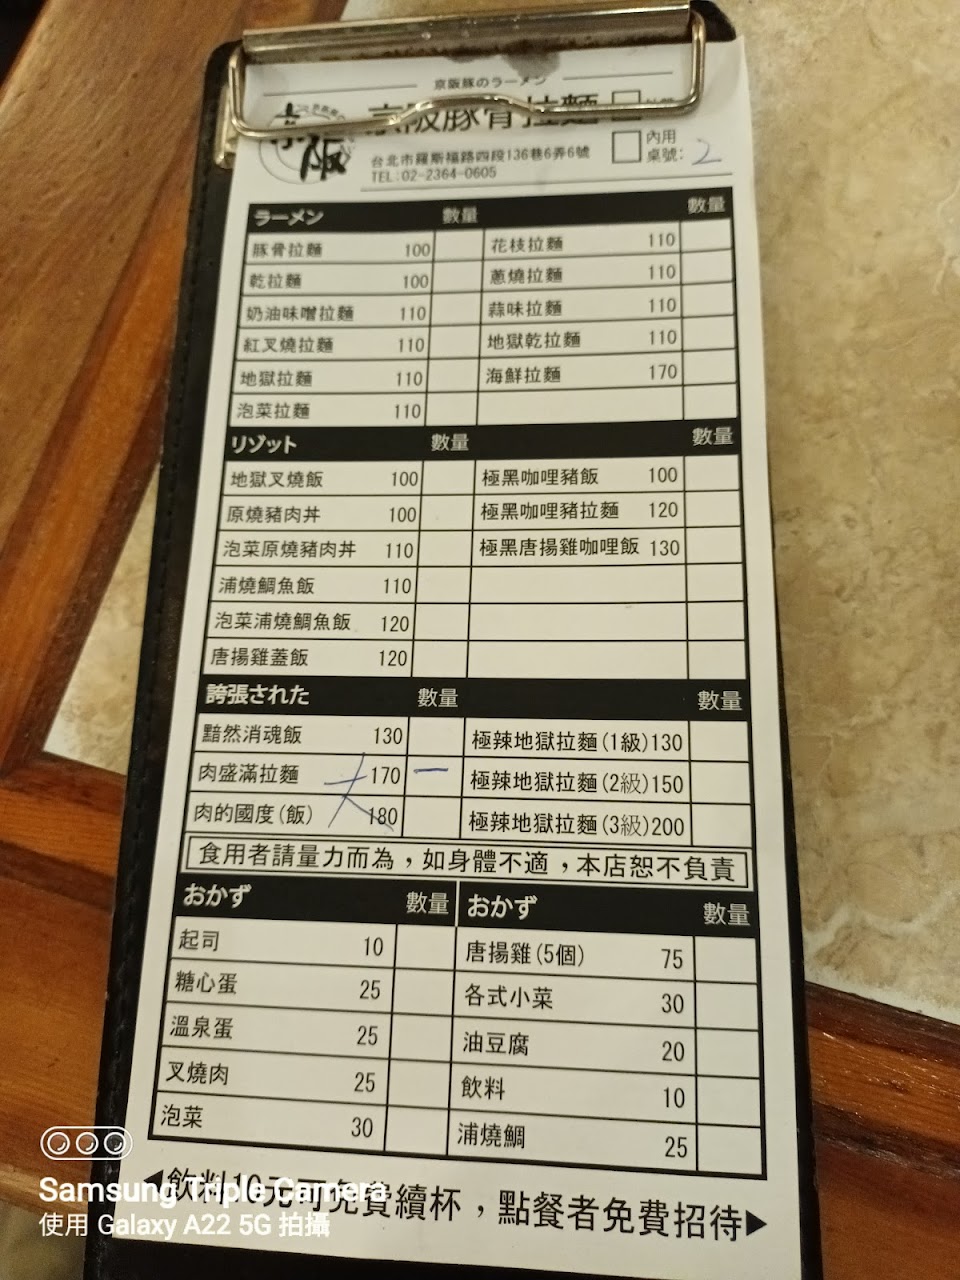 京阪豚のラーメン
京阪豚骨拉麵
京阪
台北市羅斯福路四段136巷6弄6號
TEL:02-2364-0605
內用
桌號: 2
ラーメン 數量 數量
豚骨拉麵 100 花枝拉麵 110
乾拉麵 100 蔥燒拉麵 110
奶油味噌拉麵 110 蒜味拉麵 110
紅叉燒拉麵 110 地獄乾拉麵 110
地獄拉麵 110 海鮮拉麵 170
泡菜拉麵 110
リゾット 數量 數量
地獄叉燒飯 100 極黑咖哩豬飯 100
原燒豬肉丼 100 極黑咖哩豬拉麵 120
泡菜原燒豬肉丼 110 極黑唐揚雞咖哩飯 130
浦燒鯛魚飯 110
泡菜浦燒鯛魚飯 120
唐揚雞蓋飯 120
誇張された 數量 數量
黯然消魂飯 130 極辣地獄拉麵(1級)130
肉盛滿拉麵 170 一 極辣地獄拉麵(2級)150
肉的國度(飯) 180 極辣地獄拉麵(3級)200
食用者請量力而為，如身體不適，本店恕不負責
おかず 數量 おかず 數量
起司 10 唐揚雞(5個) 75
糖心蛋 25 各式小菜 30
溫泉蛋 25 油豆腐 20
叉燒肉 25 飲料 10
泡菜 30 浦燒鯛 25
◀飲料10元可免費續杯，點餐者免費招待▶
Samsung Triple Camera
使用 Galaxy A22 5G 拍攝